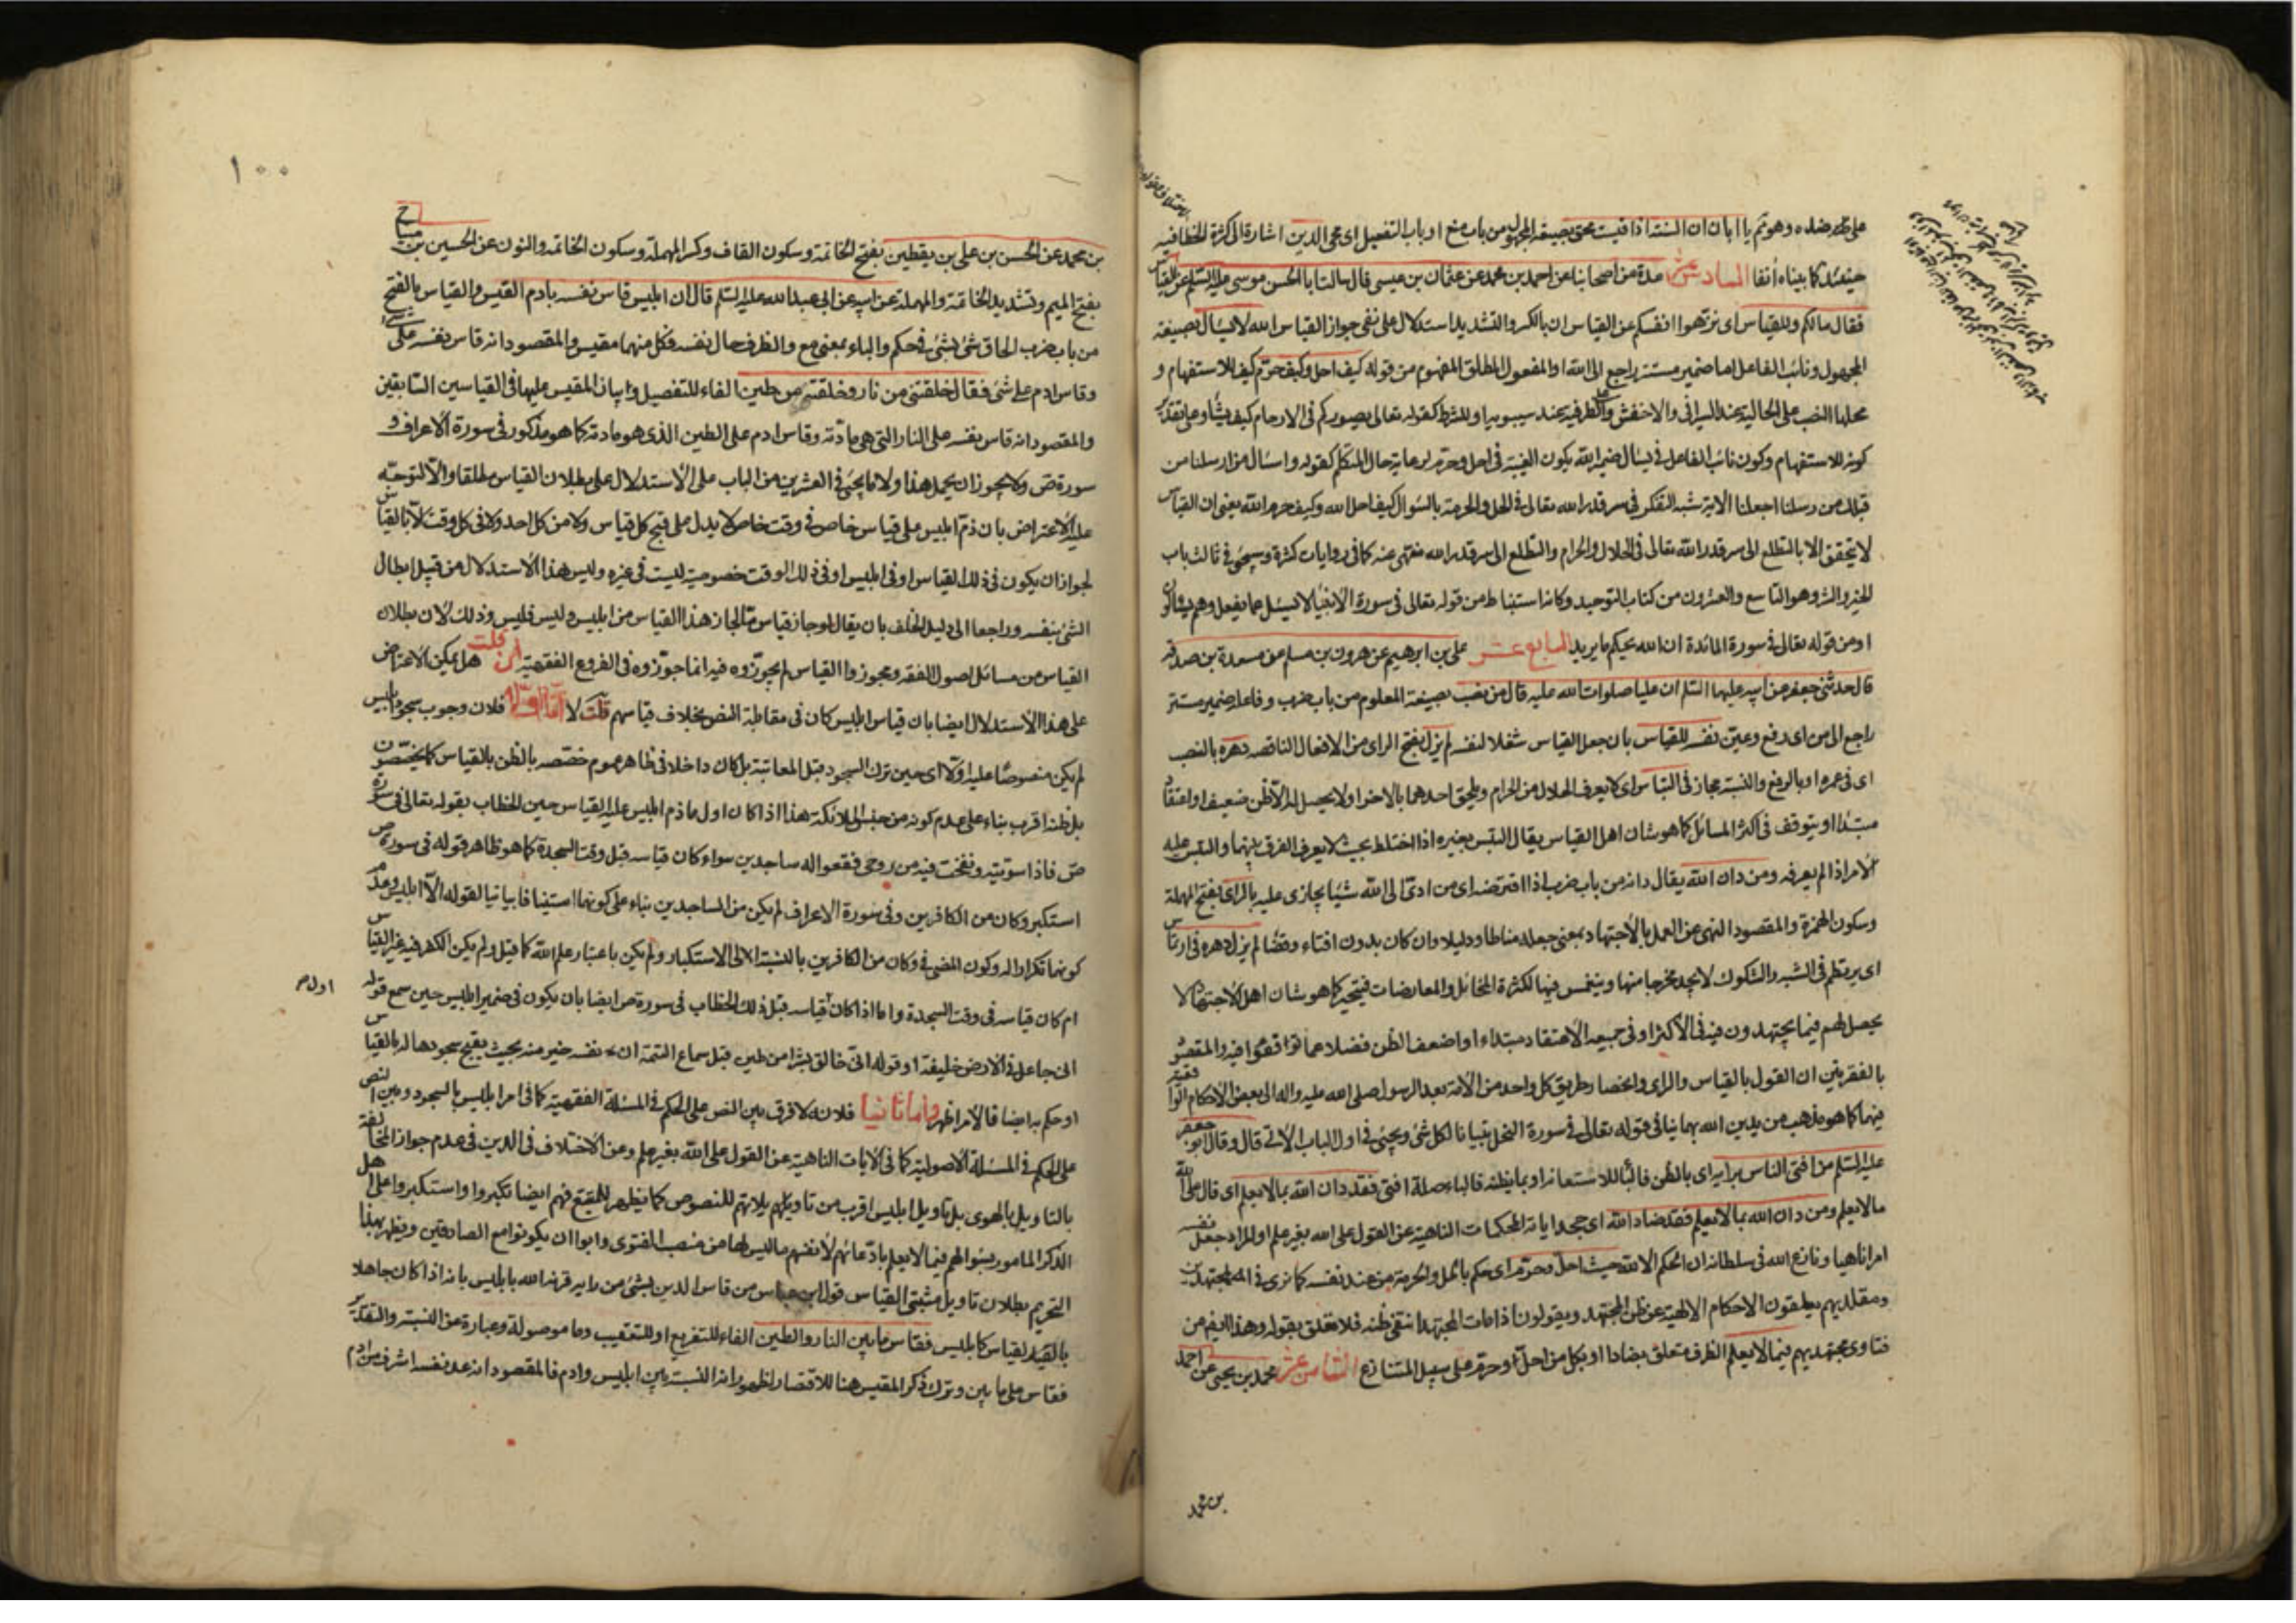 على ضده وهو ثم يا ابان ان السنة اذا قيست محق بصيغة المجهول من باب منع او باب التفعيل اى محى الدين اشارة الى كثرة الخطا فيه
حينئذ كما بيناه آنفا السادس عشر عدة من اصحابنا عن احمد بن محمد عن عثمان بن عيسى قال سالت ابا الحسن موسى عليه السلم عن القياس
فقال مالكم وللقياس اى نزهوا انفسكم عن القياس ان بالكسر والتشديد استدلال على نفى جواز القياس الله لا يسال بصيغة
المجهول ونائب الفاعل اما ضمير مستتر راجع الى الله او المفعول المطلق المفهوم من قوله كيف احل وكيف حرم كيف للاستفهام و
محلها النصب على الحالية عند السيرافى والاخفش وعلى الظرفية عند سيبويه او للشرط كقوله تعالى يصوركم فى الارحام كيف يشاء وعلى تقدير
كونه للاستفهام وكون نائب الفاعل فى يسال ضمير الله يكون الغيبة فى احل وحرم لرعاية حال المتكلم كقوله واسئال من ارسلنا من
قبلك من رسلنا اجعلنا الآية شبه التفكر فى سر قدر الله تعالى فى الحل والحرمة بالسؤال كيف احل الله وكيف حرم الله يعنى ان القياس
لا يتحقق الا بالتطلع الى سر قدر الله تعالى فى الحلال والحرام والتطلع الى سر قدر الله منهى عنه كما فى روايات كثرة وسيجئ فى ثالث باب
الخير والشر وهو التاسع والعشرون من كتاب التوحيد وكانه استنباط من قوله تعالى فى سورة الانبياء لا يسئل عما يفعل وهم يسألون
او من قوله تعالى فى سورة المائدة ان الله يحكم ما يريد السابع عشر على بن ابرهيم عن هرون بن مسلم عن مسعدة بن صدقة
قال حدثنى جعفر عن ابيه عليهما السلم ان عليا صلوات الله عليه قال من نصب بصيغة المعلوم من باب ضرب وفاعله ضمير مستتر
راجع الى من اى رفع وعين نفسه للقياس بان جعل القياس شغلا لنفسه لم يزل بفتح الراى من الافعال الناقصة دهره بالنصب
اى فى عمره او بالرفع والنسبة مجاز فى التباس اى لا يعرف الحلال من الحرام ويلحق احدهما بالاخر او لا يحصل له الا ظن ضعيف او اعتقاد
مبتدا او يتوقف فى اكثر المسائل كما هو شان اهل القياس يقال التبس بغيره اذا اختلط بحيث لا يعرف الفرق بينهما والتبس عليه
الامر اذا لم يعرفه ومن دان الله يقال دانه من باب ضرب اذا اقترضه اى من ادى الى الله شيئا يجازى عليه بالراى بفتح المهملة
وسكون الهمزة والمقصود النهى عن العمل بالاجتهاد بمعنى جعله مناطا ودليلا وان كان بدون افتاء وقضا لم يزل دهره فى ارتماس
اى يرتطم فى الشبه والشكوك لا يجد مخرجا منها وينغمس فيها لكثرة المخائل والمعارضات فيتحير كما هو شان اهل الاجتهاد لا
يحصل لهم فيما يجتهدون فيه فى الاكثر او فى جميعه الاعتقاد مبتدا او اضعف الظن فضلا عما توافقوا فيه والمقصود
بالفقرتين ان القول بالقياس والراى وانحصار طريق كل واحد من الامة بعد الرسول صلى الله عليه واله الى بعض الاحكام الواقعية
فيهما كما هو مذهب من يدين الله بهما ينافى قوله تعالى فى سورة النحل تبيانا لكل شئ ويجئ فى اول الباب الاتى قال وقال ابو جعفر
عليه السلم من افتى الناس برايه اى بالظن فالباء للاستعانة او بما يظنه فالباء صلة افتى فقد دان الله بما لا يعلم اى قال على الله
ما لا يعلم ومن دان الله بما لا يعلم فقد ضاد الله اى جحد ايات المحكمات الناهية عن القول على الله بغير علم او المراد جعل نفسه
امرا ناهيا ونازع الله فى سلطانه ان الحكم الا لله حيث احل وحرم اى حكم بالحل والحرمة من عند نفسه كما نرى فى المجتهدين
ومقلديهم يعلقون الاحكام الالهية عن ظن المجتهد ويقولون اذا مات المجتهد انتفى ظنه فلا تعلق بقوله وهذا ايضا من
فتاوى مجتهديهم فيما لا يعلم الظرف متعلق بضادا او بكل من احل وحرم على سبيل المتنازع الثامن عشر محمد بن يحيى عن احمد
بن محمد
١٠٠
بن محمد عن الحسن بن على بن يقطين بفتح الخاتمة وسكون القاف وكسر المهملة وسكون الخاتمة والنون عن الحسين بن مياح
بفتح الميم وتشديد الخاتمة والمهملة عن ابيه عن ابى عبد الله عليه السلم قال ان ابليس قاس نفسه بادم القيس والقياس بالفتح
من باب ضرب الحاق شئ بشئ فى حكم والباء بمعنى مع والظرف حال نفسه فكل منهما مقيس والمقصود انه قاس نفسه على شئ
وقاس ادم على شئ فقال خلقتنى من نار وخلقته من طين الفاء للتفصيل وبيان المقيس عليهما فى القياسين السابقين
والمقصود انه قاس نفسه على النار التى هى مادته وقاس ادم على الطين الذى هو مادته كما هو مذكور فى سورة الاعراف و
سورة ص ولا يجوز ان يحمل هذا ولا ما يجئ فى العشرين من الباب على الاستدلال على بطلان القياس مطلقا والا لتوجه
عليه الاعتراض بان ذم ابليس على قياس خاص فى وقت خاص لا يدل على قبح كل قياس ولا من كل احد ولا فى كل وقت الا بالقياس
لجواز ان يكون فى ذلك القياس او فى ابليس او فى ذلك الوقت خصوصية ليست فى غيره وليس هذا الاستدلال من قبيل ابطال
الشئ بنفسه وراجعا الى دليل الخلف بان يقال لو جاز قياس ما لجاز هذا القياس من ابليس وليس فليس وذلك لان بطلان
القياس من مسائل اصول الفقه ومجوزوا القياس لم يجوزوه فيه انما جوزوه فى الفروع الفقهية ان قلت هل يمكن الاعتراض
على هذا الاستدلال ايضا بان قياس ابليس كان فى مقابلة النص بخلاف قياسهم قلت لا اما اولا فلان وجوب سجود ابليس
لم يكن منصوصا عليه اولا اى حين ترك السجود قبل المعاتبة بل كان داخلا فى ظاهر عموم خصصه بالظن بالقياس كما يخصصون
بل ظنه اقرب بناء على عدم كونه من جنس الملائكة هذا اذا كان اول ما ذم ابليس عليه القياس حين الخطاب بقوله تعالى فى سورة
ص فاذا سويته ونفخت فيه من روحى فقعوا له ساجدين سواء كان قياسه قبل وقت السجدة كما هو ظاهر قوله فى سورة ص
استكبر وكان من الكافرين وفى سورة الاعراف لم يكن من الساجدين بناء على كونهما استينافا بيانيا لقوله الا ابليس وعدم
كونهما تكرارا له وكون المضى فى وكان من الكافرين بالنسبة الى الاستكبار ولم يكن باعتبار علم الله كما قيل ولم يكن الكفر فيه غير القياس
ام كان قياسه فى وقت السجدة واما اذا كان قياسه قبل ذلك الخطاب فى سورة ص ايضا بان يكون فى ضمير ابليس حين سمع قوله
اول ص
انى جاعل فى الارض خليفة او قوله انى خالق بشرا من طين قبل سماع التتمة ان نفسه خير منه بحيث يقبح سجودها له بالقياس
او حكم به ايضا فالامر اظهر واما ثانيا فلانه لا فرق بين النص على الحكم فى المسئلة الفقهية كما فى امر ابليس بالسجود وبين النص
على الحكم فى المسئلة الاصولية كما فى الايات الناهية عن القول على الله بغير علم وعن الاختلاف فى الدين فى عدم جواز المخالفة
بالتاويل بالهوى بل تاويل ابليس اقرب من تاويلهم بلا تهم للنصوص كما يظهر للمتتبع فهم ايضا تكبروا واستكبروا على اهل
الذكر المامور بسؤالهم فيما لا يعلم بادعائهم لانفسهم ما ليس لها من منصب الفتوى وابوا ان يكونوا مع الصادقين ويظهر بهذا
التحريم بطلان تاويل مثبتى القياس قول ابن عباس من قاس الدين بشئ من رايه قرنه الله بابليس بانه اذا كان جاهلا
بالقيد لقياس كابليس فقاس ما بين النار والطين الفاء للتفريع او للتعقيب وما موصولة وعبارة عن النسبة والتقدير
فقاس على ما بين وترك ذكر المقيس هنا للاقتصار لظهور انه النسبة بين ابليس وادم فالمقصود انه عد نفسه اشرف من ادم